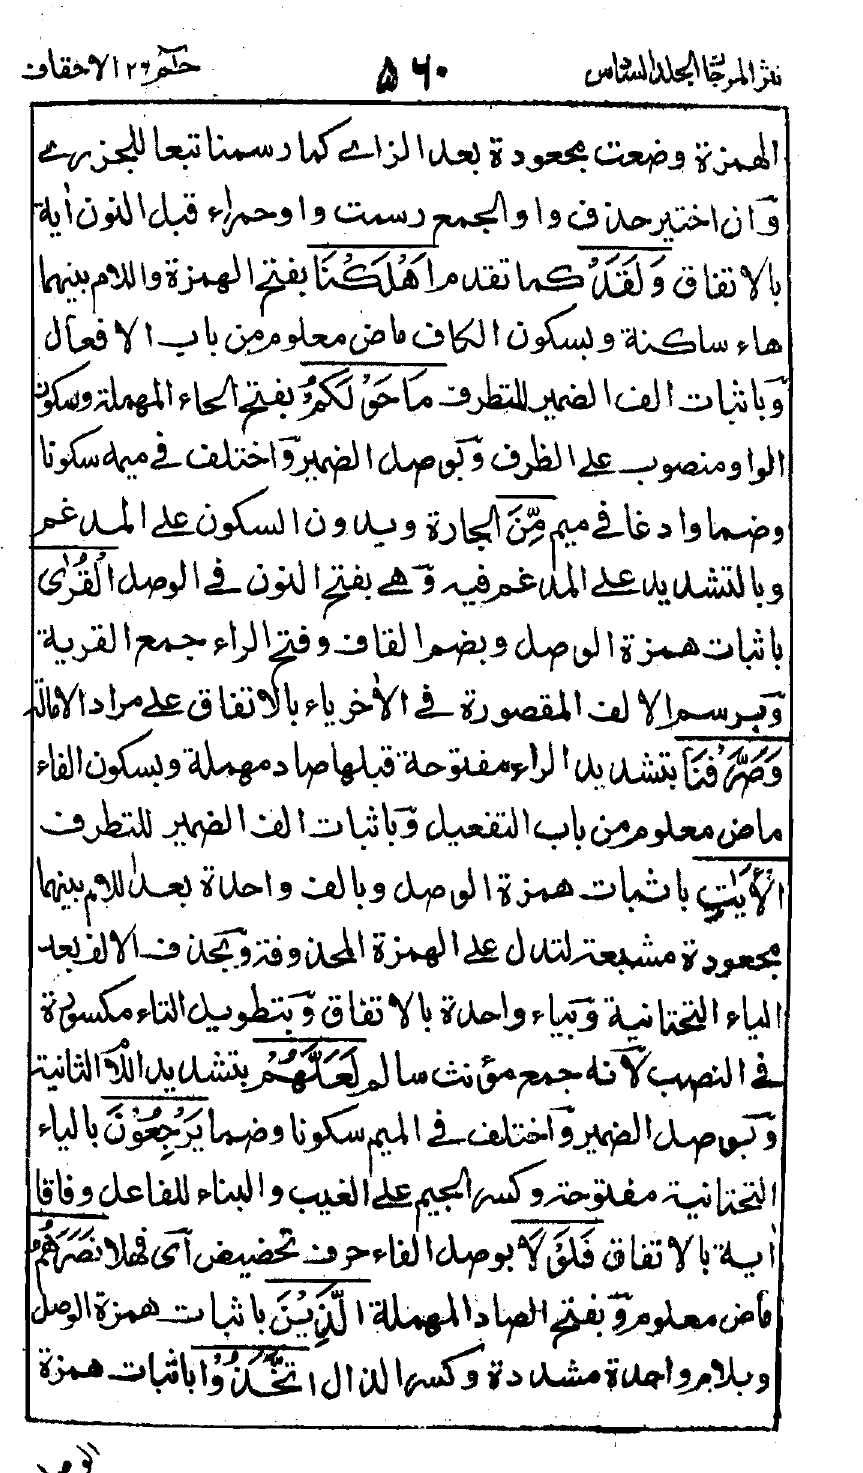 نثر المرجان الجلد السادس ٥٦٠ حٰمٓ ٢٦ الاحقاف
الهمزة وضعت مجعودة بعد الزاے كما رسمنا تبعا للجزرے
وَان اختير حذف واو الجمع رسمت واو حمراء قبل النون اٰية
بالاتفاق وَلَقَدْ كما تقدم اَهْلَكْنَا بفتح الهمزة واللام بينهما
هاء ساكنة وبسكون الكاف ماض معلوم من باب الافعال
وَباثبات الف الضمير للتطرف مَا حَوْلَكُمْ بفتح الحاء المهملة وسكون
الواو منصوب علے الظرف وَبوصل الضمير وَاختلف فے ميمه سكونا
وضما وادغما فے ميم مِّنَ الجارة وبدون السكون علے المدغم
وبالتشديد علے المدغم فيه وَهے بفتح النون فے الوصل الْقُرٰى
باثبات همزة الوصل وبضم القاف وفتح الراء جمع القرية
وَبرسم الالف المقصورة فے الاٰخر ياء بالاتفاق علے مراد الامالة
وَصَرَّفْنَا بتشديد الراء مفتوحة قبلها صاد مهملة وبسكون الفاء
ماض معلوم من باب التفعيل وَباثبات الف الضمير للتطرف
الْاٰيٰتِ باثبات همزة الوصل وبالف واحدة بعد اللام بينهما
مجعودة مشبعة لتدل علے الهمزة المحذوفة وَبحذف الالف بعد
الياء التحتانية وَبياء واحدة بالاتفاق وَبتطويل التاء مكسورة
فے النصب لاَنه جمع مؤنث سالم لَعَلَّهُمْ بتشديد اللام الثانية
وَبوصل الضمير وَاختلف فے الميم سكونا وضما يَرْجِعُوْنَ بالياء
التحتانية مفتوحة وكسر الجيم علے الغيب والبناء للفاعل وفاقا
اٰية بالاتفاق فَلَوْلَا بوصل الفاء حرف تحضيض اَى فهلا نَصَرَهُمُ
ماض معلوم وَبفتح الصاد المهملة الَّذِيْنَ باثبات همزة الوصل
وبلام واحدة مشددة وَكسر الذال اتَّخَذُوْا باثبات همزة
الوصل